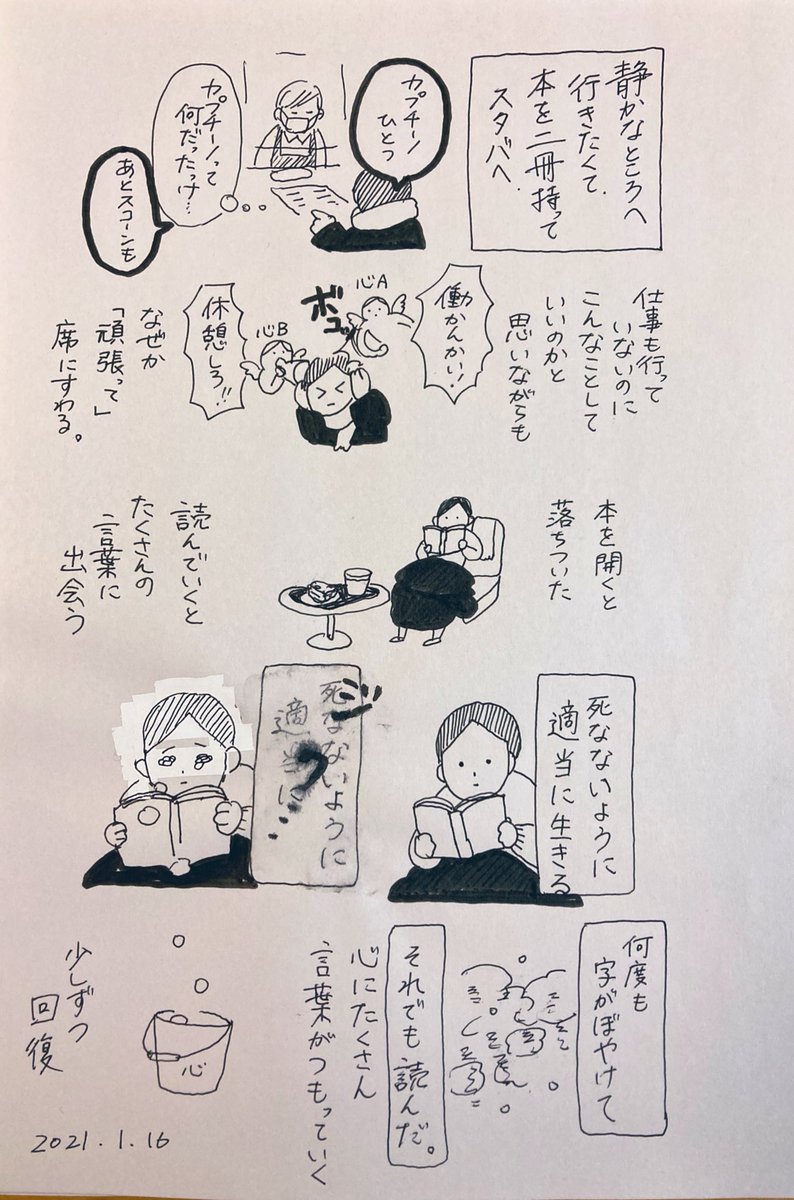 静かなところへ
行きたくて
本を二冊持って
スタバへ
カプチーノ
ひとつ
カプチーノって
何だったっけ…
あとスコーンも
仕事も行って
いないのに
こんなことして
いいのかと
思いながらも
働かんかい!
心A
ボコッ
心B
休憩しろ!!
なぜか
「頑張って」
席にすわる。
本を開くと
落ちついた
読んでいくと
たくさんの
言葉に
出会う
死なないように
適当に生きる
死なないように
適当に…
ジ
ワ
何度も
字がぼやけて
それでも読んだ。
心にたくさん
言葉がつもっていく
心
少しずつ
回復
2021.1.16